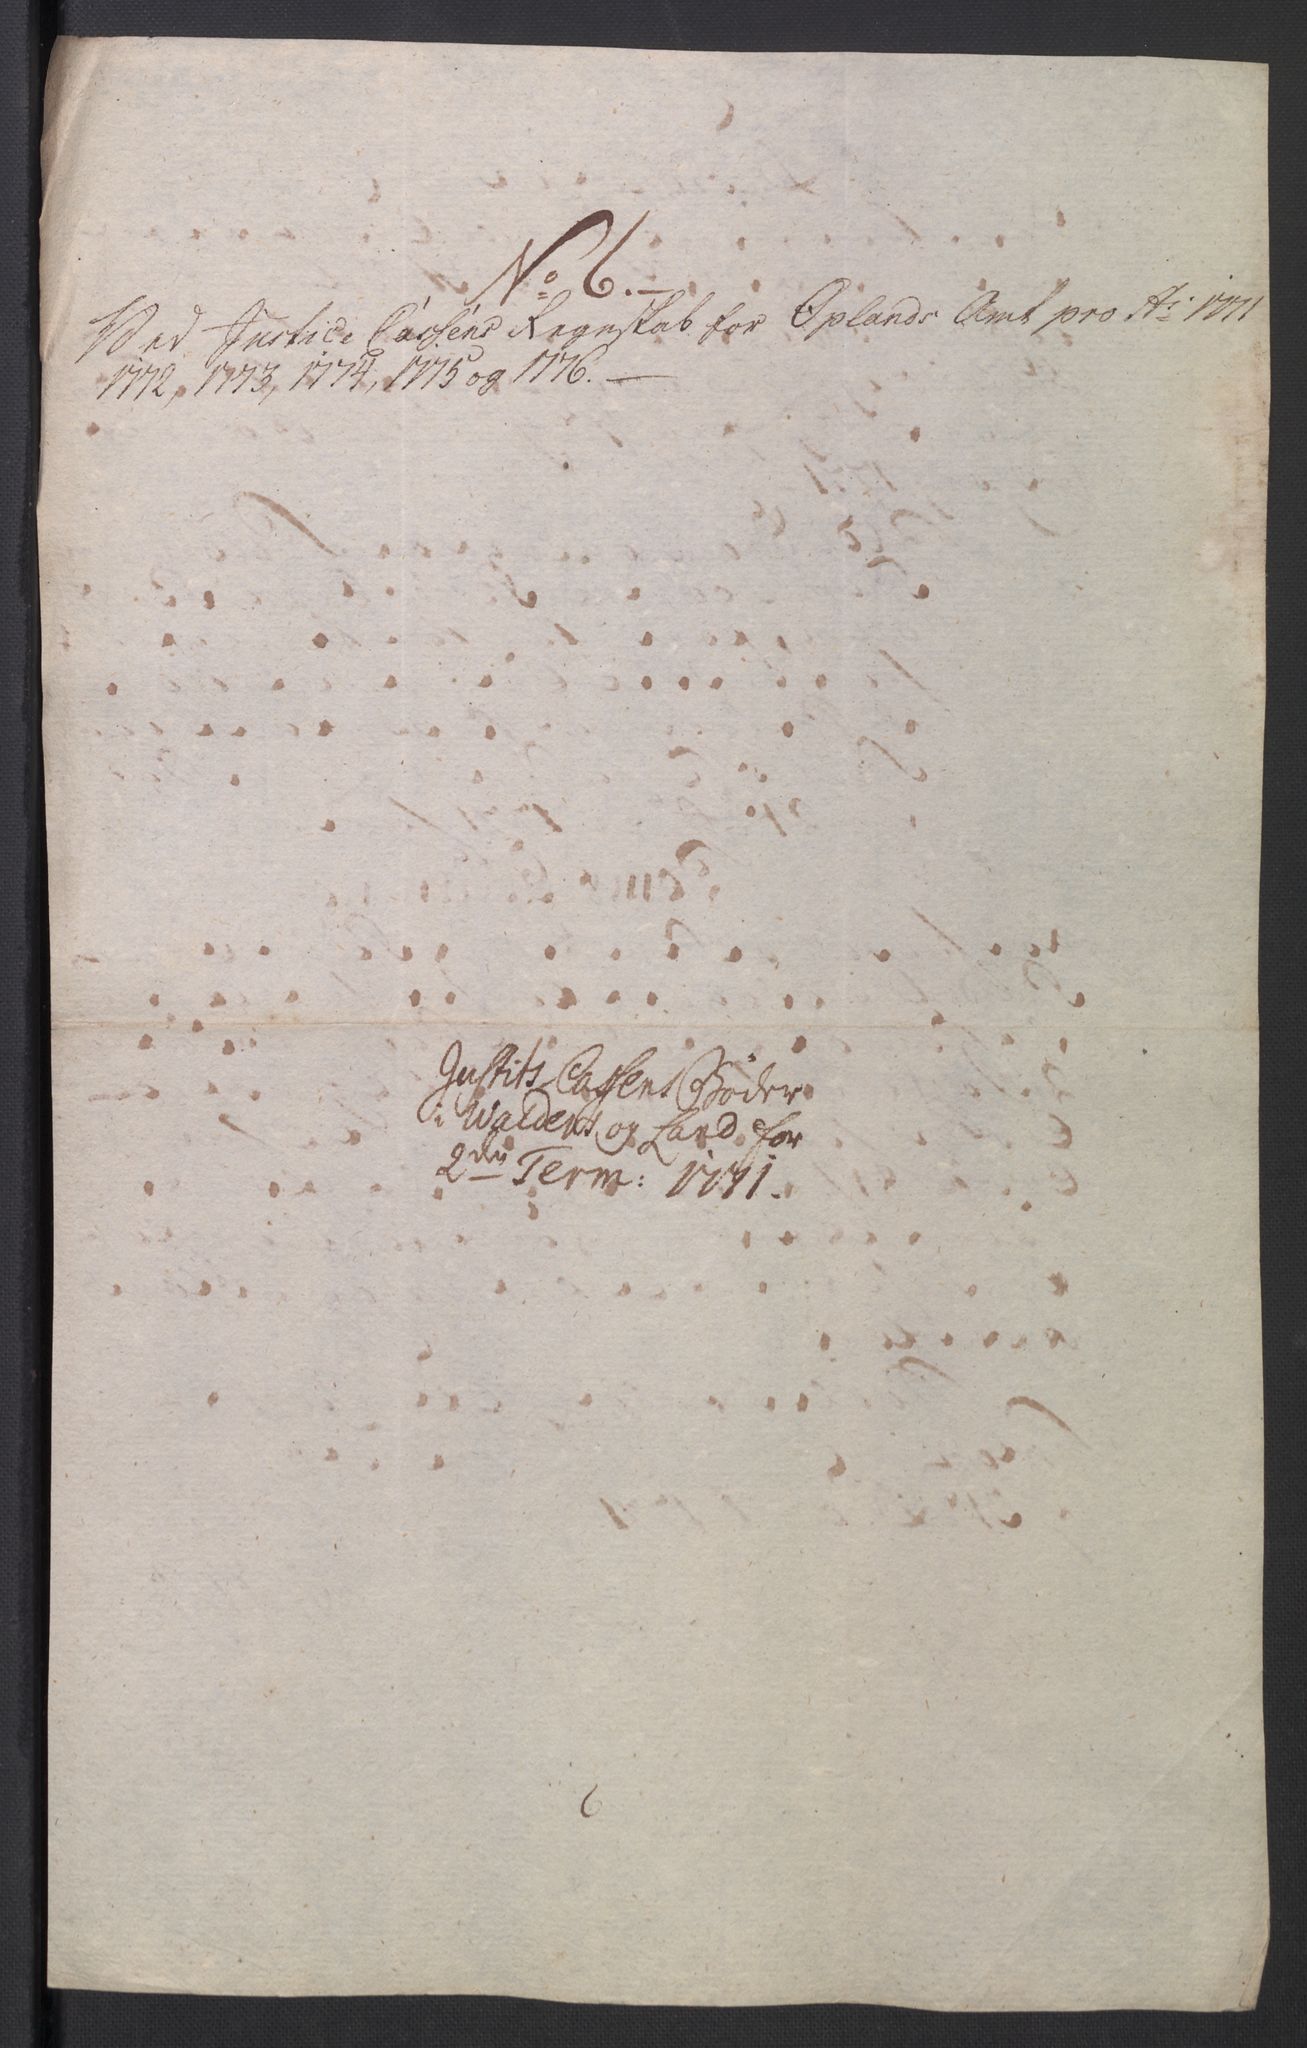 No 6.
Ved Justice Cassens Regnskab for Oplands Amt pro Ao: 1771
1772, 1773, 1774, 1775 og 1776.
Justits Cassens Bøder
i Walders og Land for
2den Term: 1771.
6